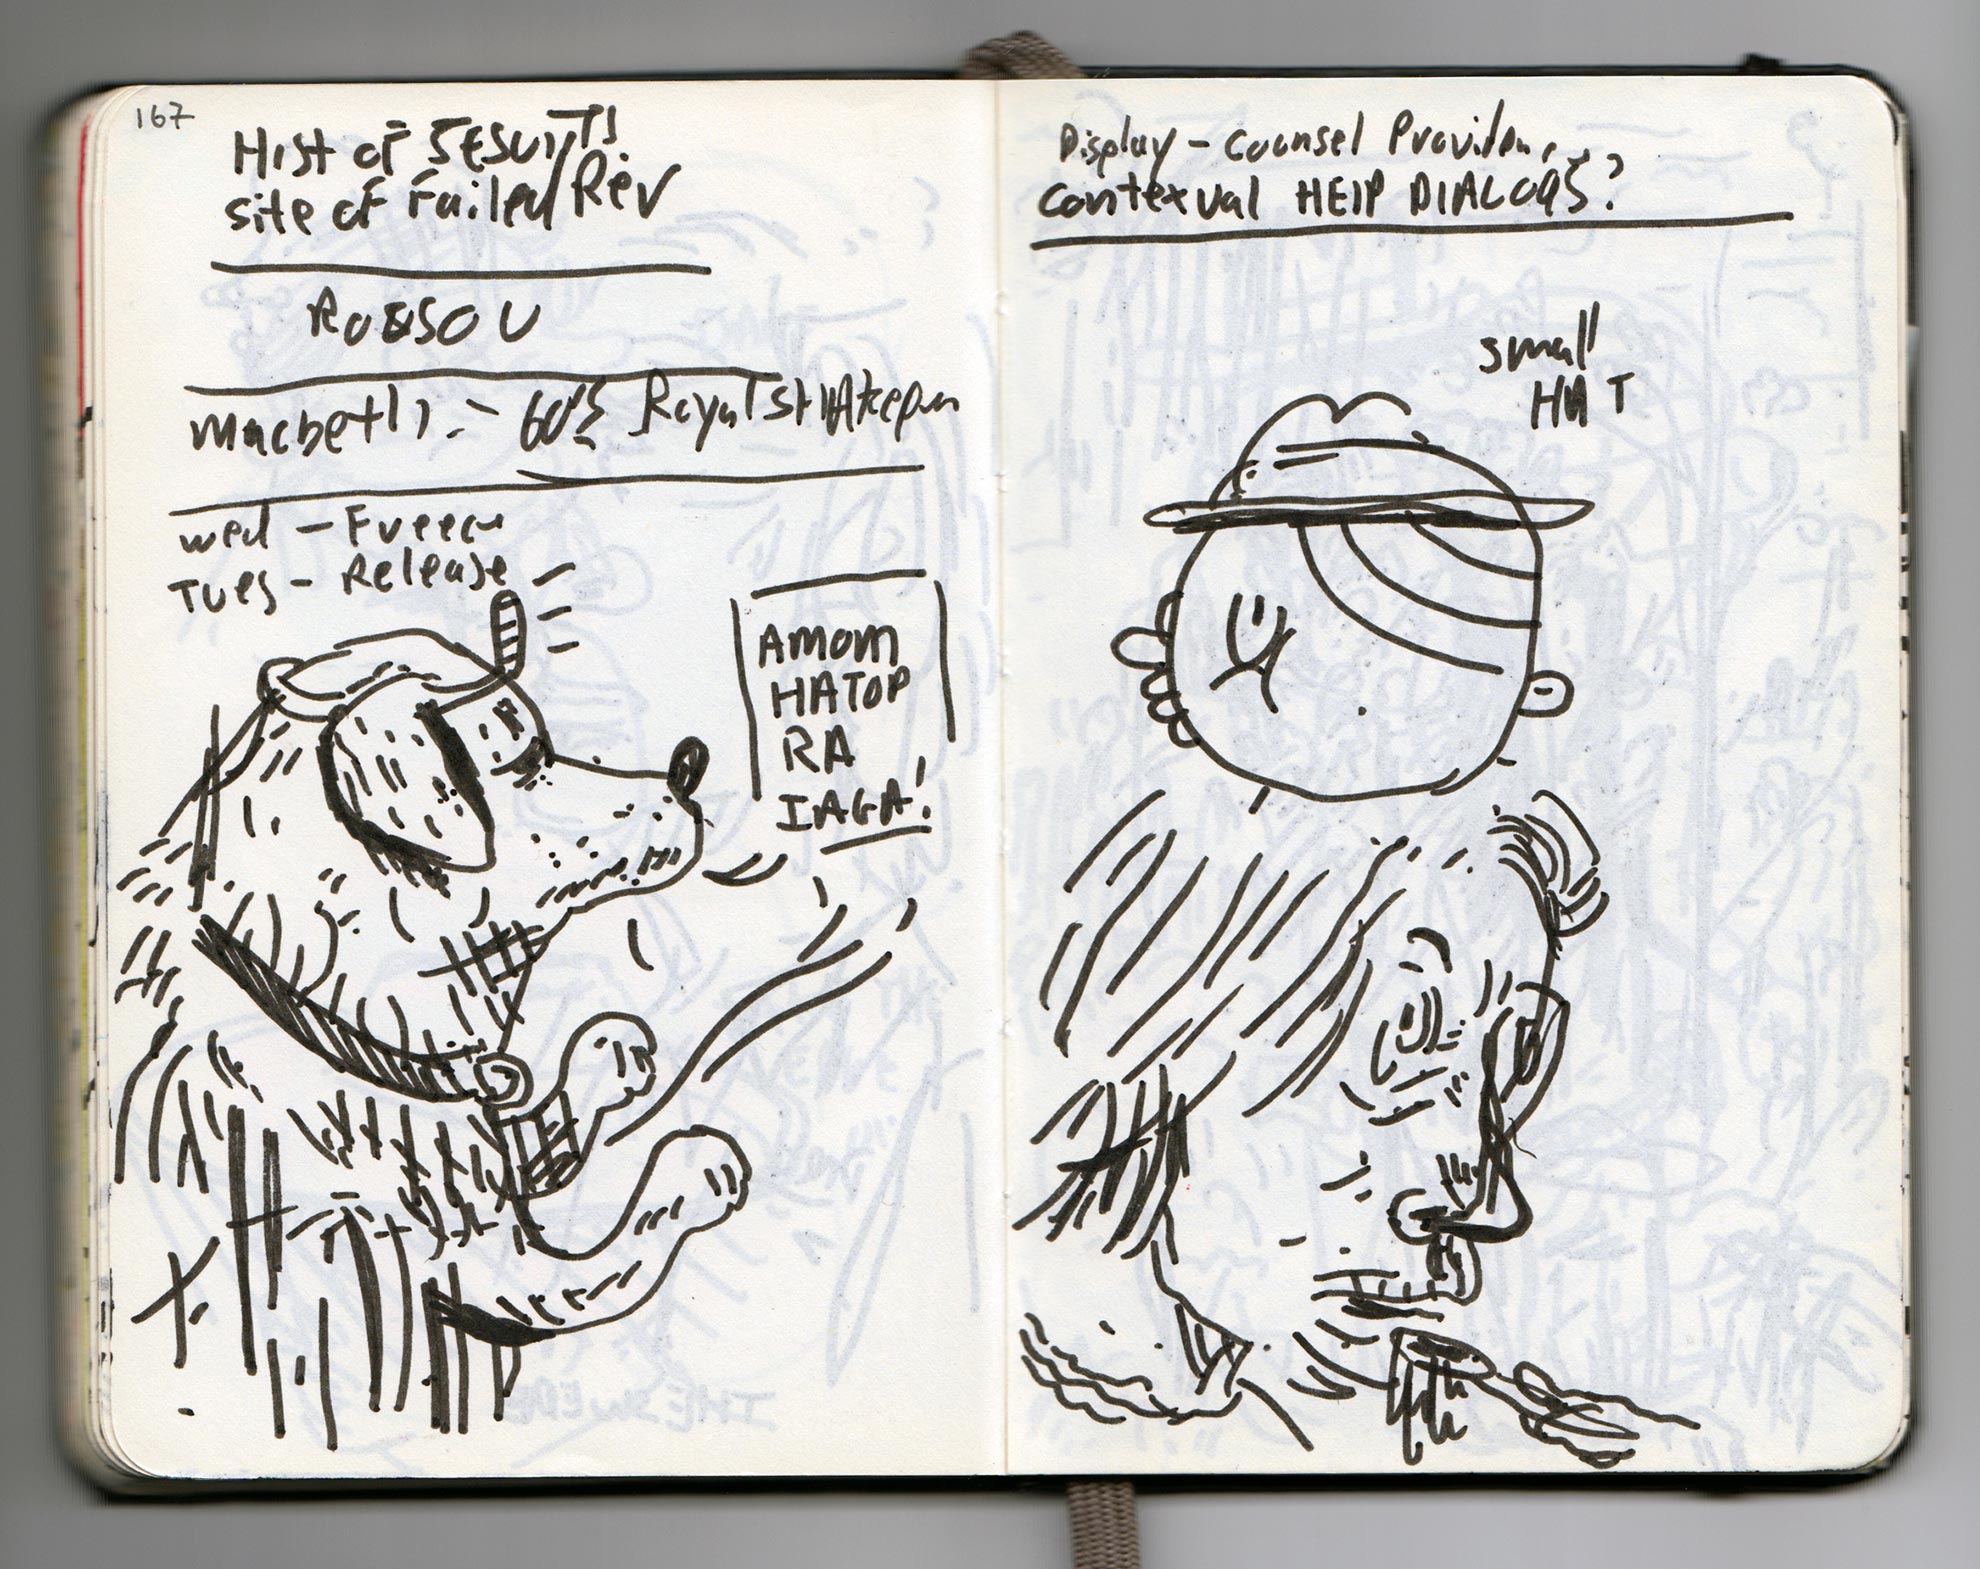 167
Hist of JESUITS
site of Failed Rev
ROESOU
Macbeth - 60's Royal
wed - Freeze
Tues - Release
AMOM
HATOP
RA
IAGA!
Display - Counsel
contexual HElP DIALOGS?
small
HAT